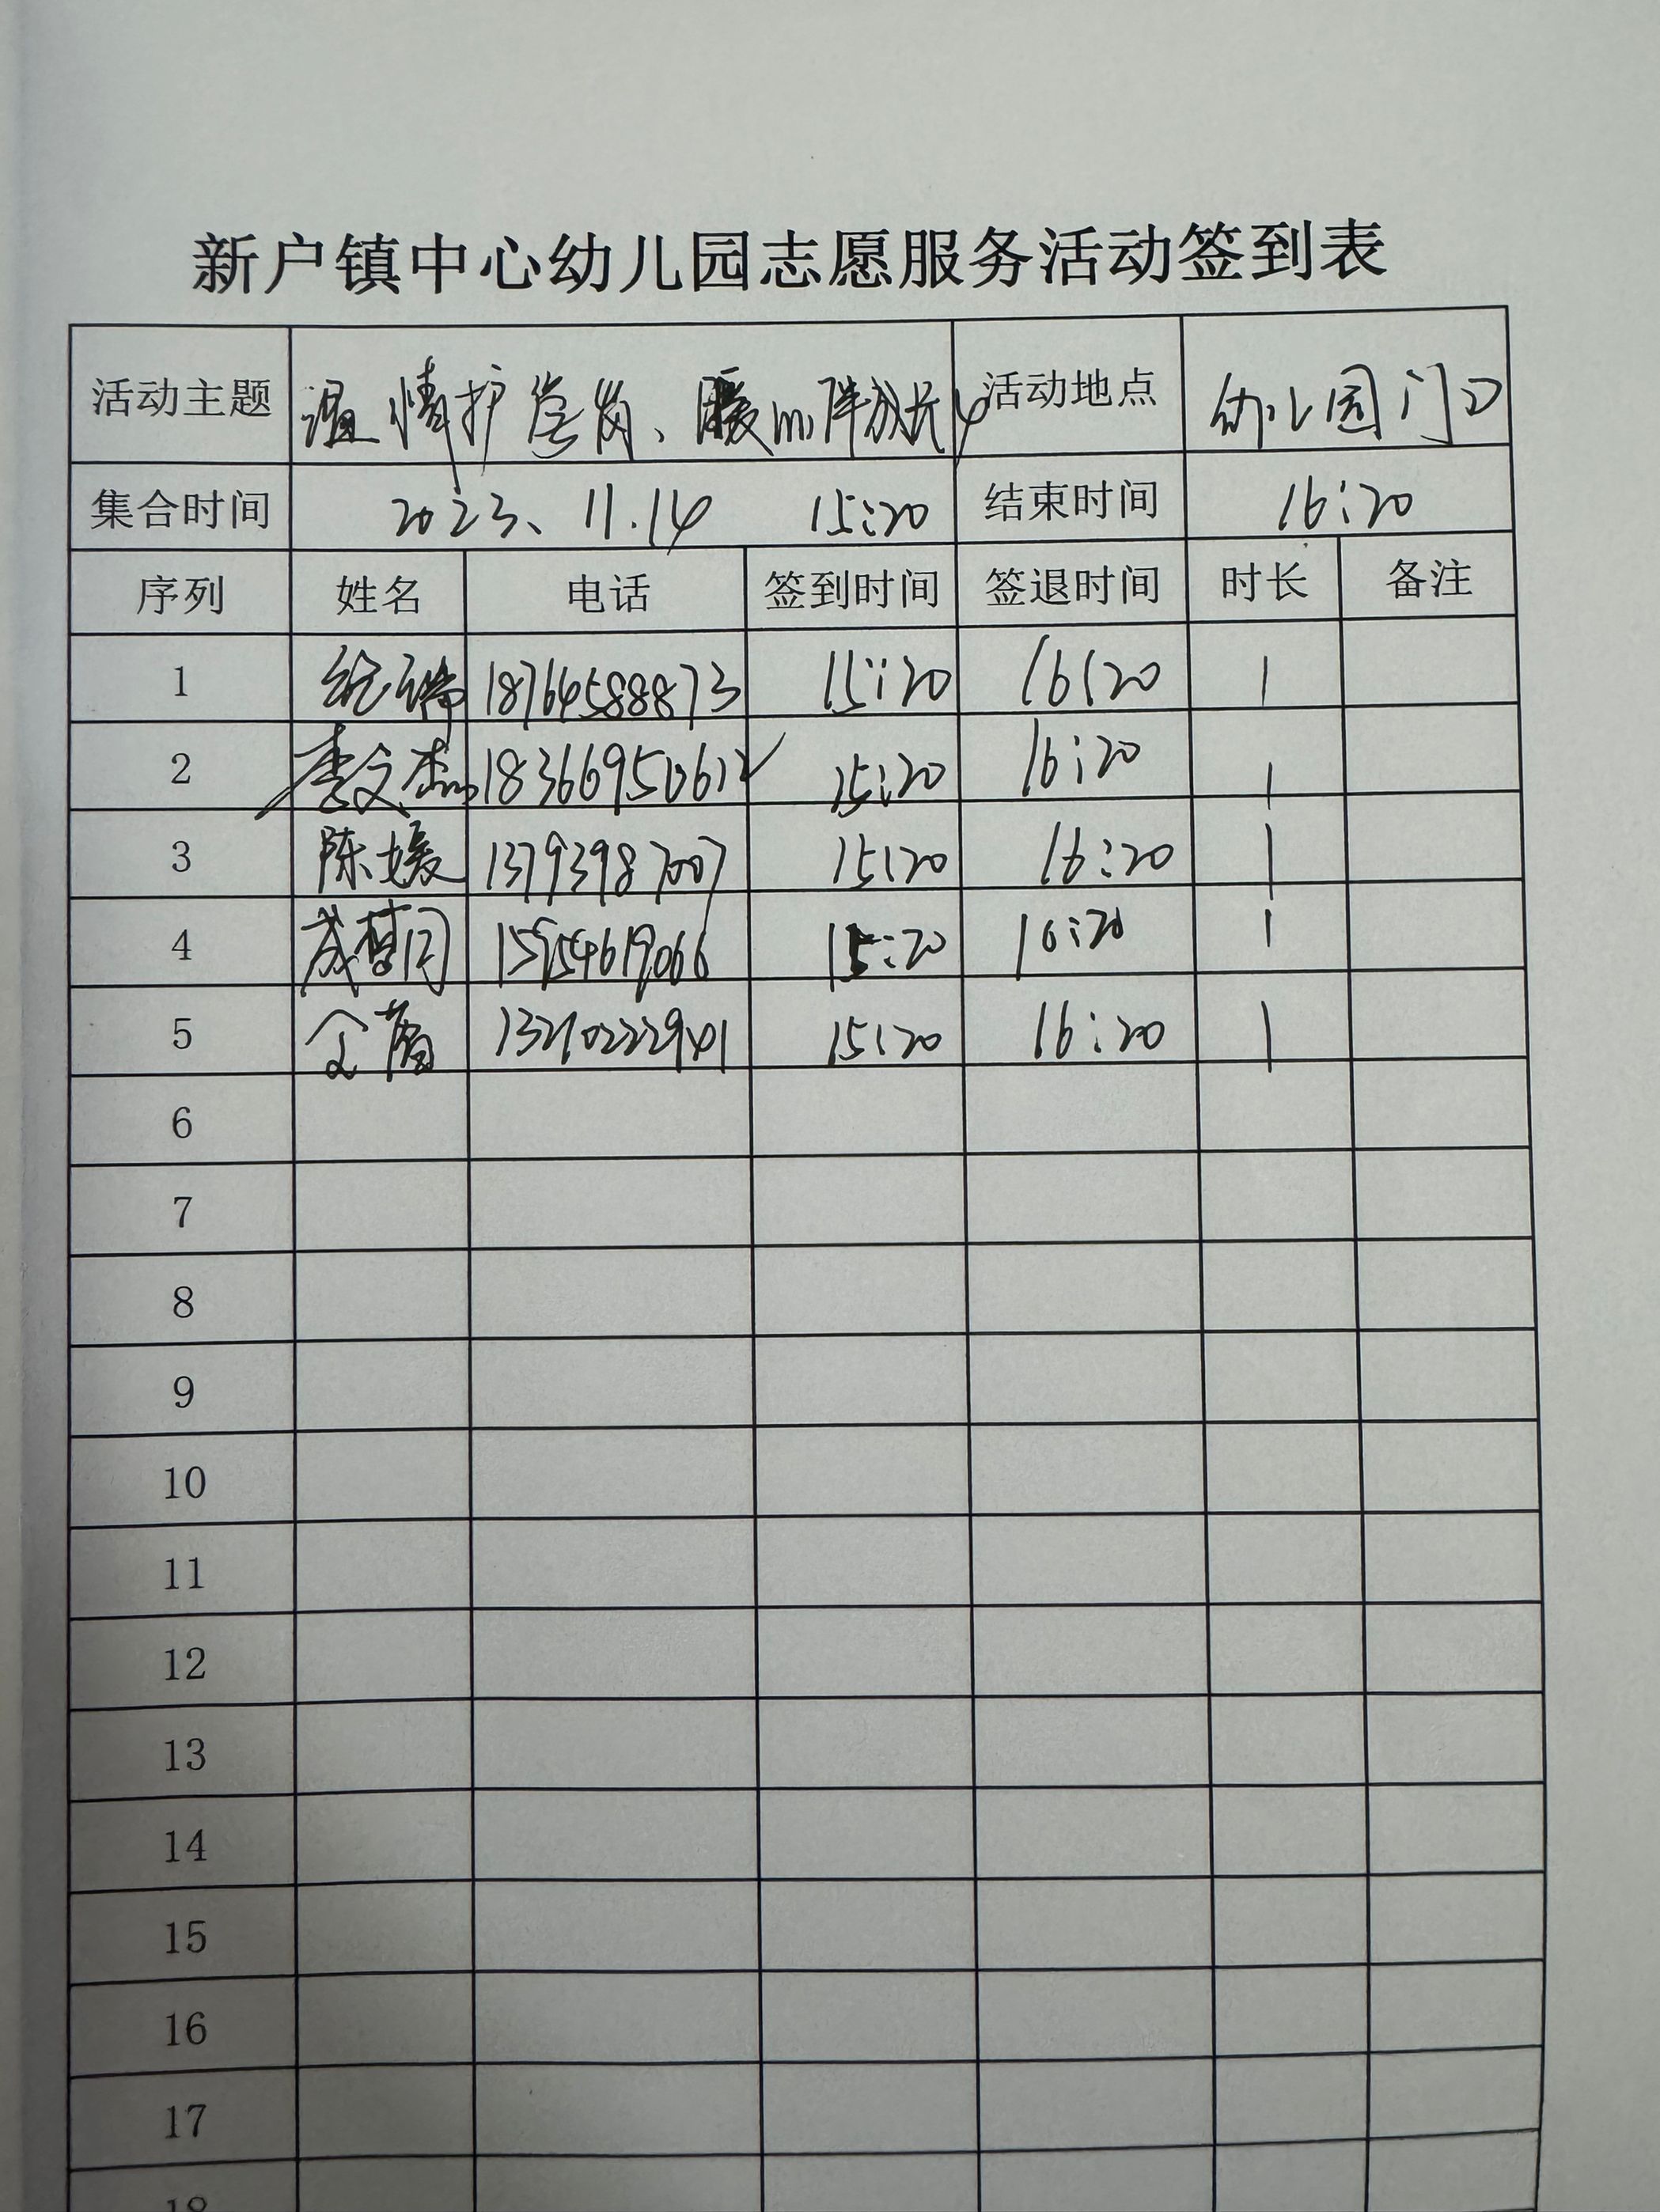 新户镇中心幼儿园志愿服务活动签到表
活动主题 温情护学岗、暖心伴成长 活动地点 幼儿园门口
集合时间 2023、11.14 15:20 结束时间 16:20
序列 姓名 电话 签到时间 签退时间 时长 备注
1 18764588873 15:20 16:20 1
2 李文杰 18366950612 15:20 16:20 1
3 陈媛 13793987007 15:20 16:20 1
4 成梦月 15954619066 15:20 16:20 1
5 仝蕾 13210222941 15:20 16:20 1
6
7
8
9
10
11
12
13
14
15
16
17
18